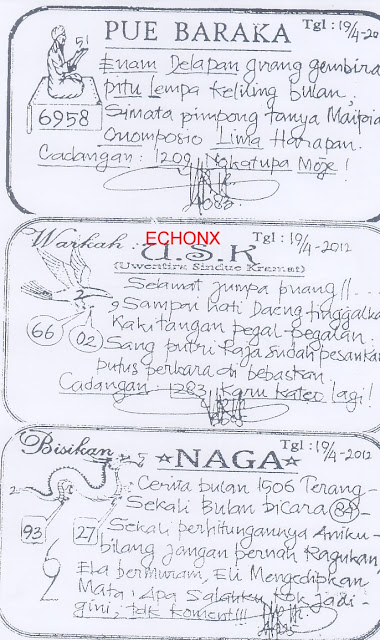 PUE BARAKA
Tgl : 19/4-20
51
6958
Enam Delapan grang gembira
pitu Lempa keliling bulan,
Simata pimpong tanya Maipia
Onomposio Lima Harapan.
Cadangan : 1209 Nokatupa Moje !
4083.
Warkah :
ECHONX
U.S.K
Tgl : 19/4-2012
(Uwentira Sindue Kramat)
2
66
02
Selamat jumpa puang !!...
Sampai hati Daeng tinggalka
kaki tangan pegal-pegalan.
Sang putri Raja sudah pesankan
putus perkara di bebaskan
Cadangan : 1203 Karu Kateo lagi !
Bisikan
NAGA
Tgl : 19/4-2012
2
5
93
27
Cerita bulan 1506 Terang-
Sekali Bulan bicara 84-
Sekali perhitungannya Aniku-
bilang jangan pernah Ragukan,
Ela bermuram, Eli Mengedipkan
Mata, Apa Salahku kok jadi-
gini, tdk koment!!!